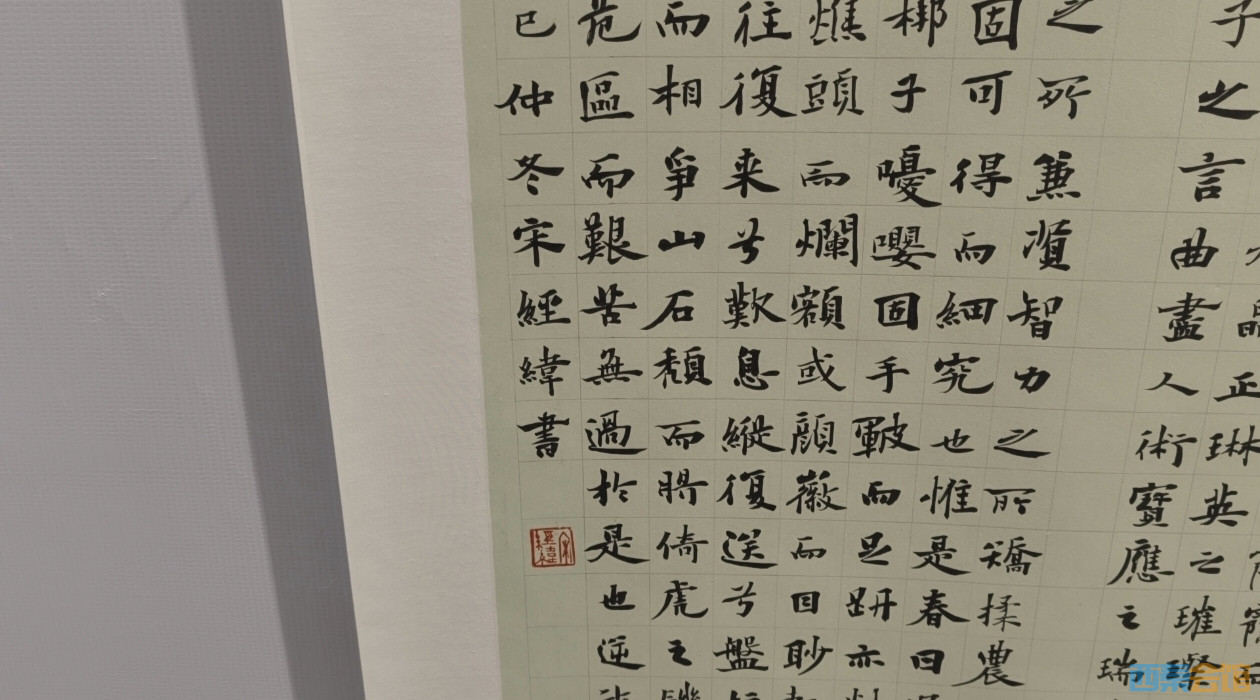 正琳英之璀璨
子之言曲盡人術寶應之瑞
之所兼湏智力之所矯揉農
固可得而細究也惟是春曰
梆子嚘嚶固手皸而足趼亦
燋頭而爛額或顏薇而目眇
往復来兮歎息縱復送兮盤
而相爭山石頹而倚虎之
危區而艱苦無過於是也逆
巳仲冬宋經緯書